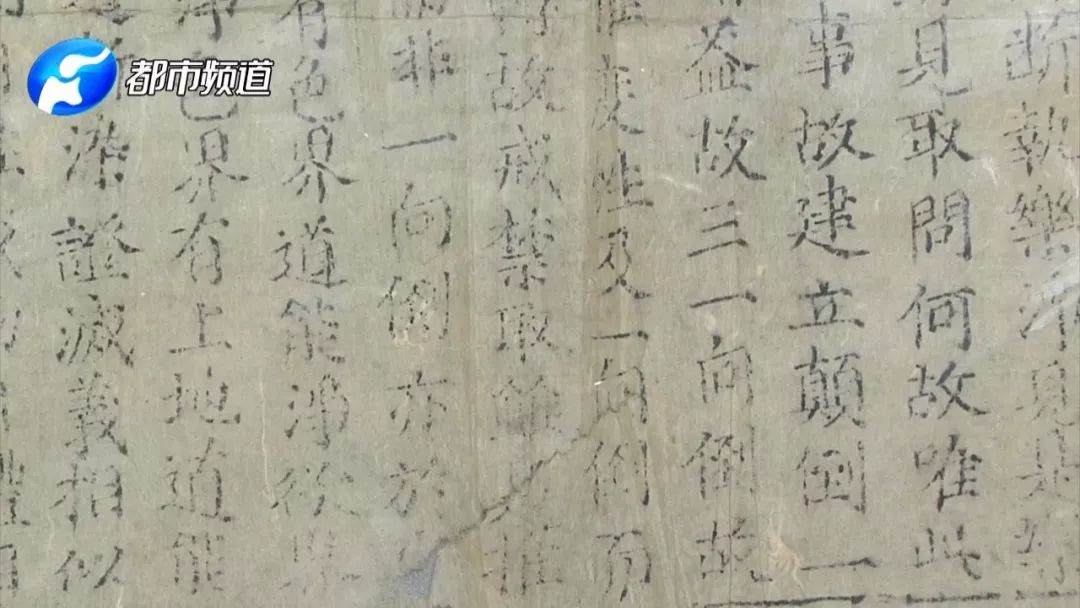 都市频道
断執樂淨見是
見取問何故唯此
事故建立顛倒一
益故三一向倒故
度性及一向倒
故戒禁取雖是推
非一向倒亦於
有色界道能淨欲界
色界有上地道能
染證滅義相似